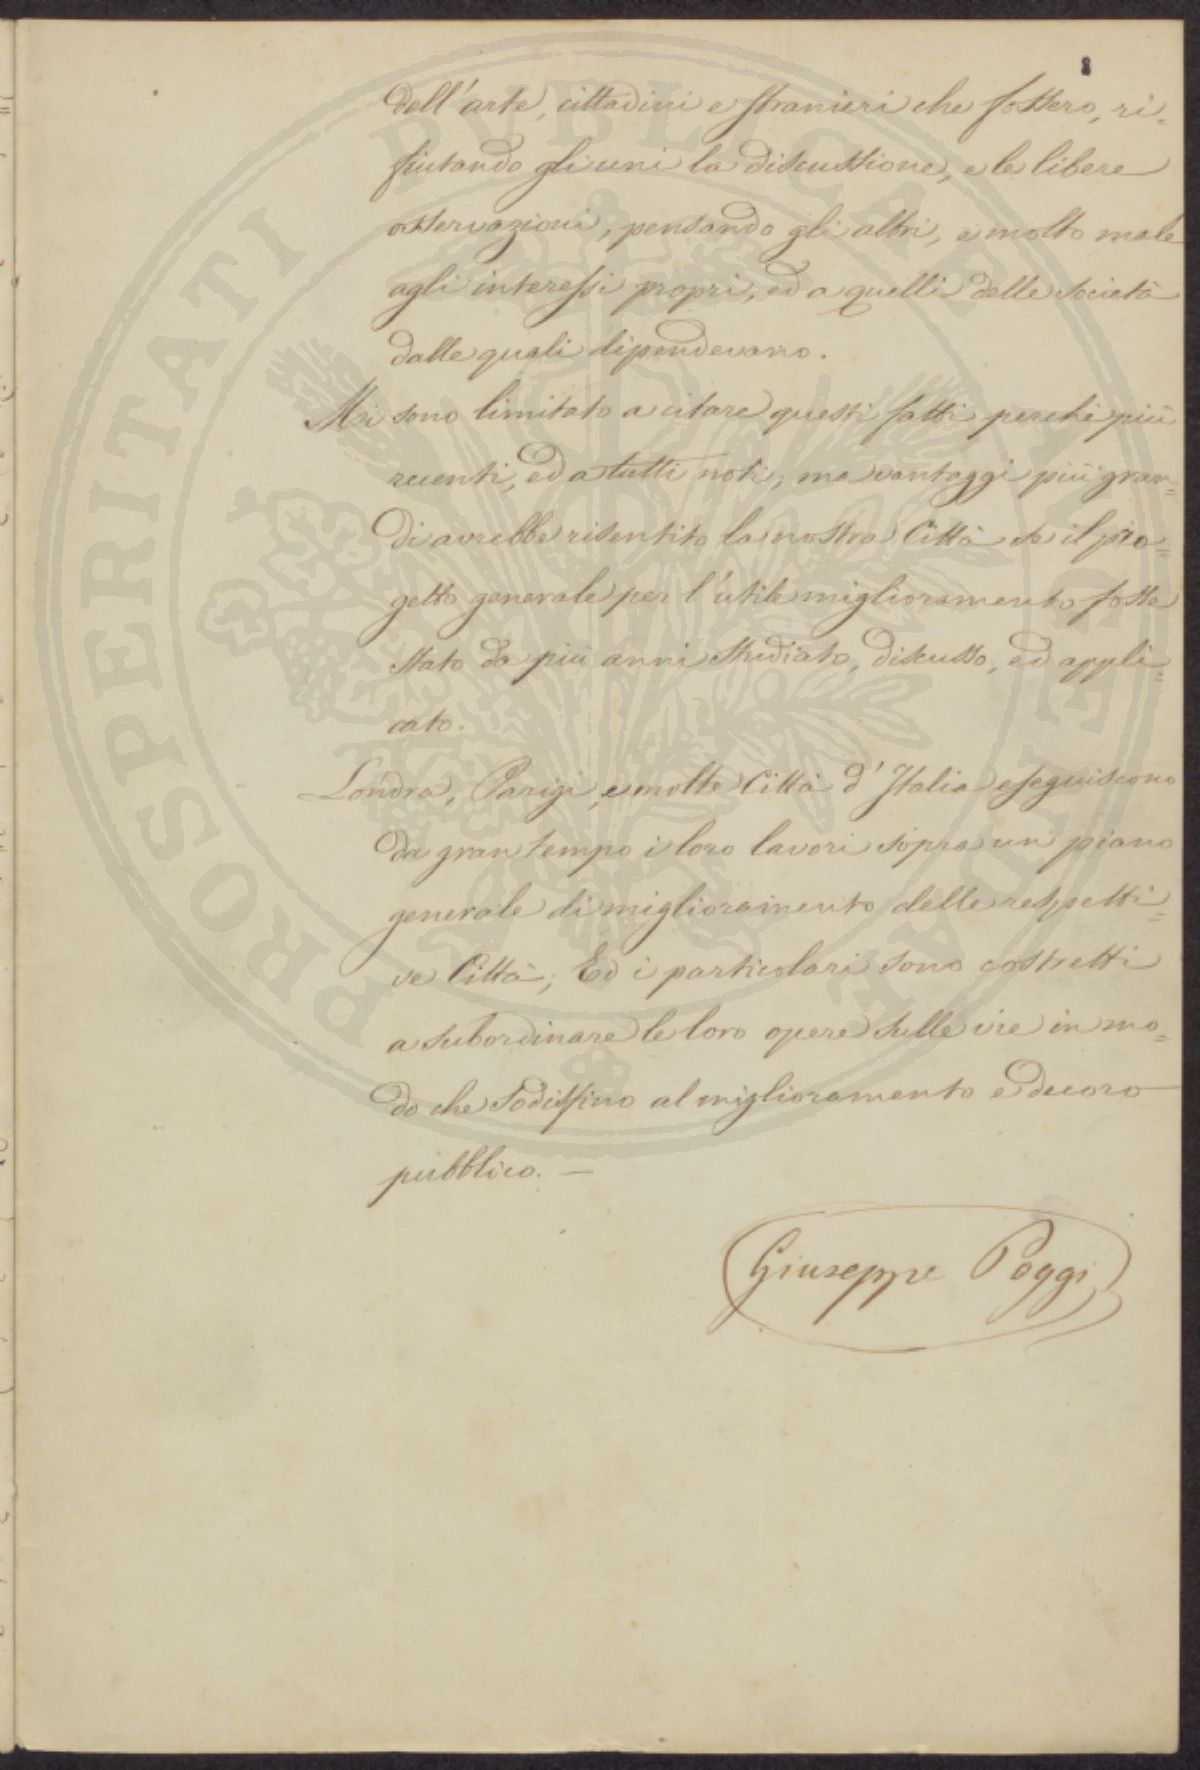 8
dell'arte, cittadini e stranieri che fossero, ri=
fiutando gli uni la discussione, e le libere
osservazioni, pensando gli altri, e molto male
agli interessi propri, ed a quelli delle società
dalle quali dipendevano.
Mi sono limitato a citare questi fatti perchè più
recenti, ed a tutti noti, ma vantaggi più gran=
di avrebbe risentito la nostra Città se il pro=
getto generale per l'utile miglioramento fosse
stato da più anni studiato, discusso, ed appli=
cato.
Londra, Parigi, e molte Città d'Italia eseguiscono
da gran tempo i loro lavori sopra un piano
generale di miglioramento delle respetti=
ve Città; Ed i particolari sono costretti
a subordinare le loro opere sulle vie in mo=
do che sodisfino al miglioramento e decoro
pubblico. —
Giuseppe Poggi
PROSPERITATI PUBLICAE AUGENDAE